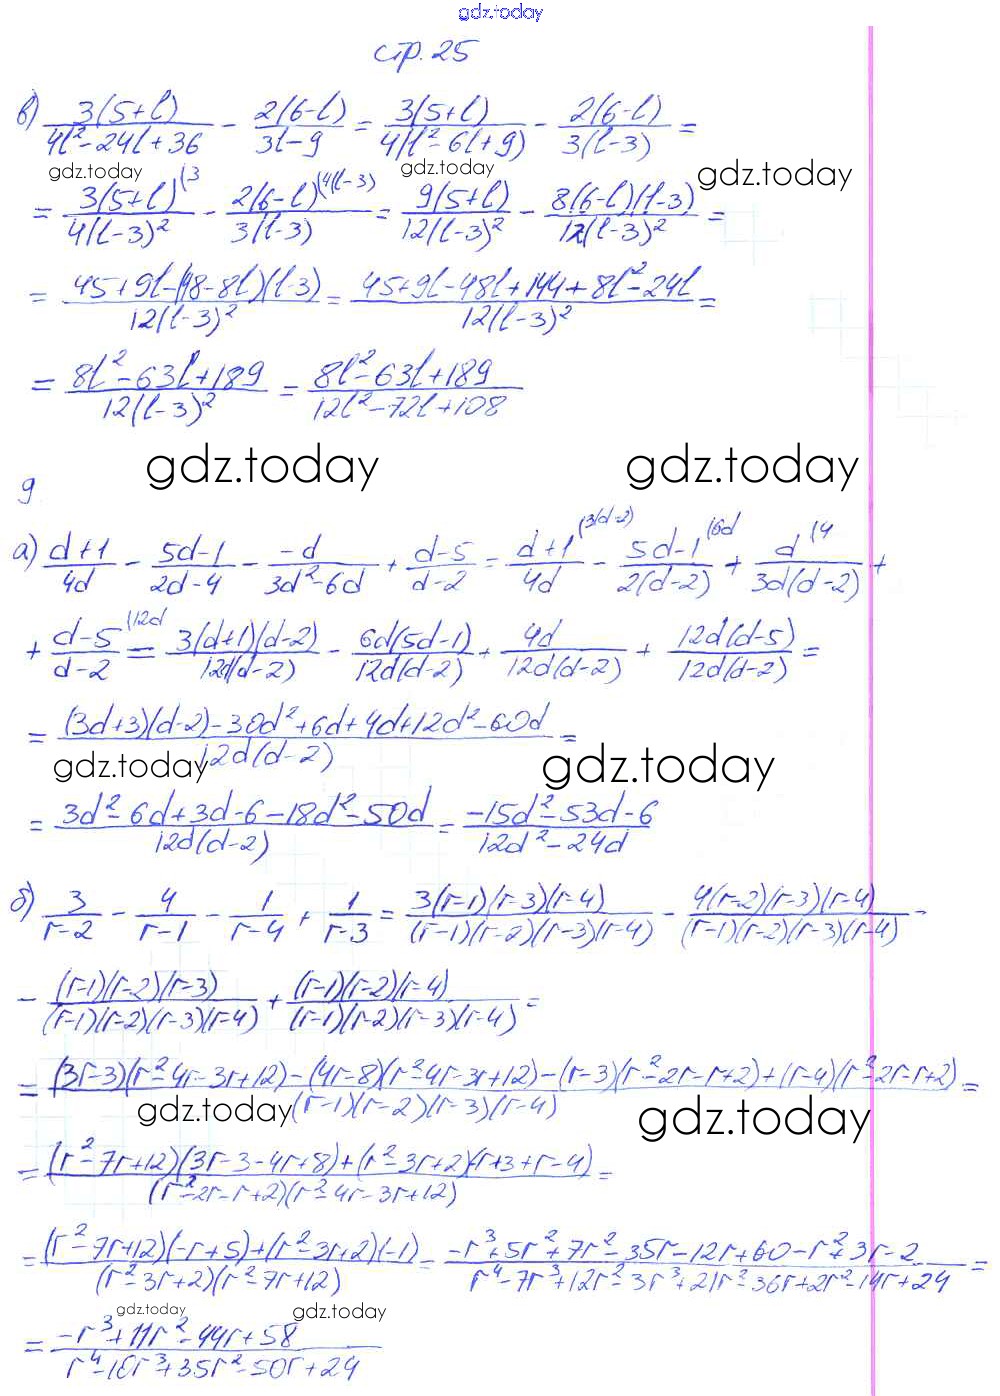 gdz.today
стр. 25
в) 3(5+l)/(4l²-24l+36) - 2(6-l)/(3l-9) = 3(5+l)/(4(l²-6l+9)) - 2(6-l)/(3(l-3)) =
gdz.today gdz.today gdz.today
= 3(5+l)^(3/(4(l-3)²) - 2(6-l)^(4(l-3)/(3(l-3)) = 9(5+l)/(12(l-3)²) - 8(6-l)(l-3)/(12(l-3)²) =
= (45+9l-(48-8l)(l-3))/(12(l-3)²) = (45+9l-48l+144+8l²-24l)/(12(l-3)²) =
= (8l²-63l+189)/(12(l-3)²) = (8l²-63l+189)/(12l²-72l+108)
gdz.today gdz.today
9
а) (d+1)/(4d) - (5d-1)/(2d-4) - (-d)/(3d²-6d) + (d-5)/(d-2) = (d+1)^(3(d-2)/(4d) - (5d-1)^(6d/(2(d-2)) + d^(4/(3d(d-2)) +
+ (d-5)^(12d/(d-2) = 3(d+1)(d-2)/(12d(d-2)) - 6d(5d-1)/(12d(d-2)) + 4d/(12d(d-2)) + 12d(d-5)/(12d(d-2)) =
= ((3d+3)(d-2)-30d²+6d+4d+12d²-60d)/(12d(d-2)) =
gdz.today gdz.today
= (3d²-6d+3d-6-18d²-50d)/(12d(d-2)) = (-15d²-53d-6)/(12d²-24d)
б) 3/(r-2) - 4/(r-1) - 1/(r-4) + 1/(r-3) = 3(r-1)(r-3)(r-4)/((r-1)(r-2)(r-3)(r-4)) - 4(r-2)(r-3)(r-4)/((r-1)(r-2)(r-3)(r-4)) -
- (r-1)(r-2)(r-3)/((r-1)(r-2)(r-3)(r-4)) + (r-1)(r-2)(r-4)/((r-1)(r-2)(r-3)(r-4)) =
= ((3r-3)(r²-4r-3r+12)-(4r-8)(r²-4r-3r+12)-(r-3)(r²-2r-r+2)+(r-4)(r²-2r-r+2))/((r-1)(r-2)(r-3)(r-4)) =
gdz.today gdz.today
= ((r²-7r+12)(3r-3-4r+8)+(r²-3r+2)(-r+3+r-4))/((r²-2r-r+2)(r²-4r-3r+12)) =
= ((r²-7r+12)(-r+5)+(r²-3r+2)(-1))/((r²-3r+2)(r²-7r+12)) = (-r³+5r²+7r²-35r-12r+60-r²+3r-2)/(r⁴-7r³+12r²-3r³+21r²-36r+2r²-14r+24) =
gdz.today gdz.today
= (-r³+11r²-44r+58)/(r⁴-10r³+35r²-50r+24)